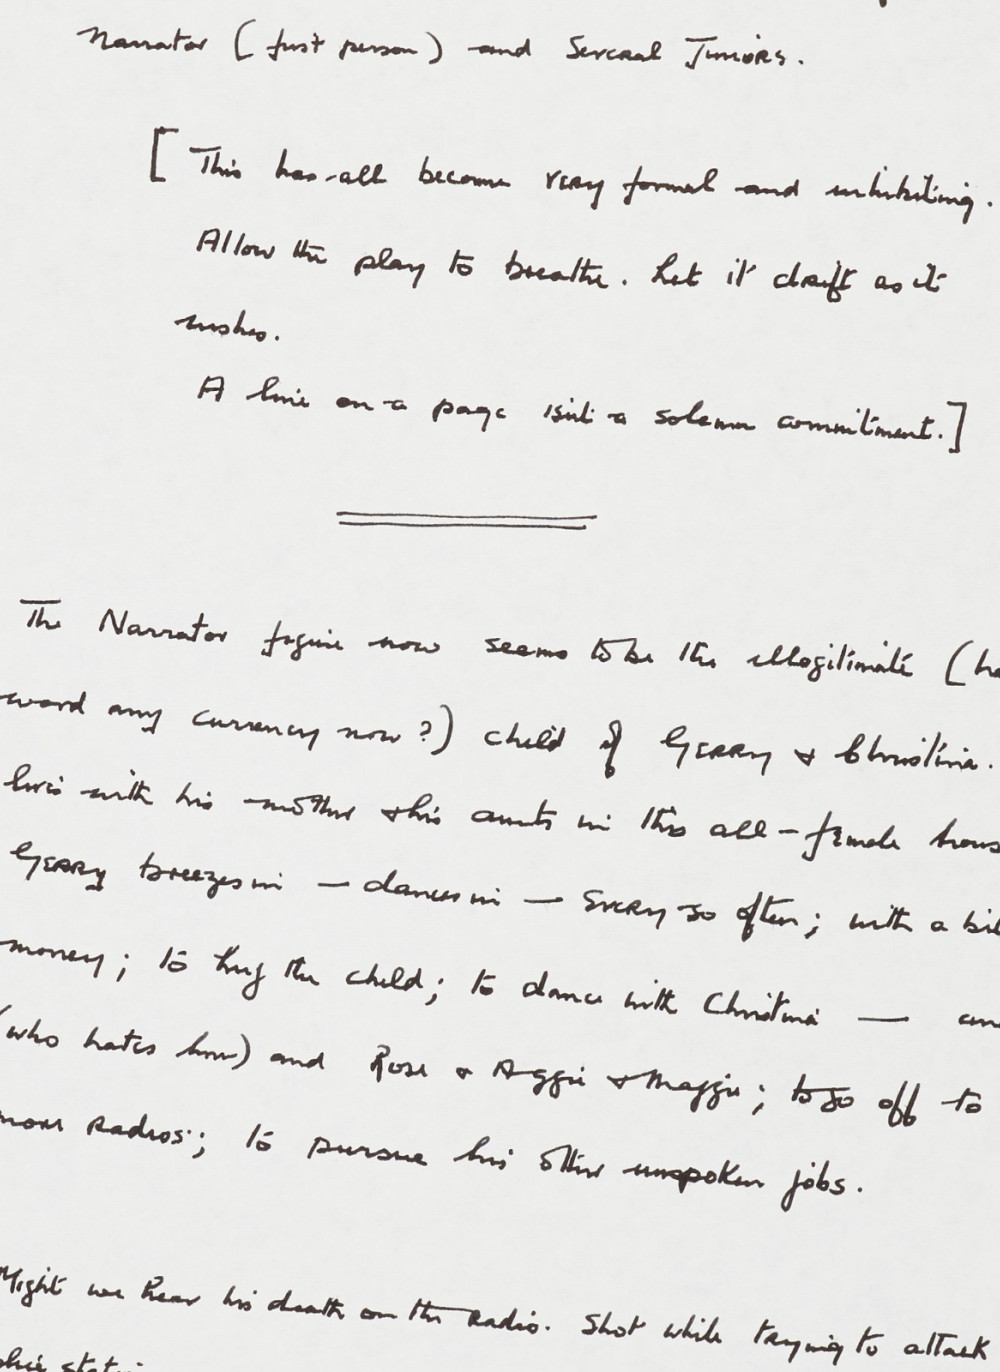 Narrator (first person) and Several Juniors.
[This has all become very formal and inhibiting.
Allow the play to breathe. Let it drift as it
wishes.
A line on a page isn't a solemn commitment.]
The Narrator figure now seems to be the illegitimate (ha
word any currency now?) child of GERRY & Christina.
lives with his mother & his aunts in this all-female hous
GERRY breezes in — dances in — Every so often; with a bit
money; to hug the child; to dance with Christina — an
(who hates him) and Rose & Aggie & Maggie; to go off to
more radios; to pursue his other unspoken jobs.
Might we hear his death on the radio. Shot while trying to attack